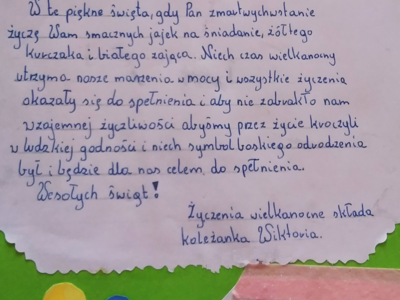 W te piękne święta, gdy Pan zmartwychwstanie
życzę Wam smacznych jajek na śniadanie, żółtego
kurczaka i białego zająca. Niech czas wielkanocny
utrzyma nasze marzenia w mocy i wszystkie życzenia
okazały się do spełnienia i aby nie zabrakło nam
wzajemnej życzliwości abyśmy przez życie kroczyli
w ludzkiej godności i niech symbol boskiego odrodzenia
był i będzie dla nas celem do spełnienia.
Wesołych świąt!
Życzenia wielkanocne składa
koleżanka Wiktoria.